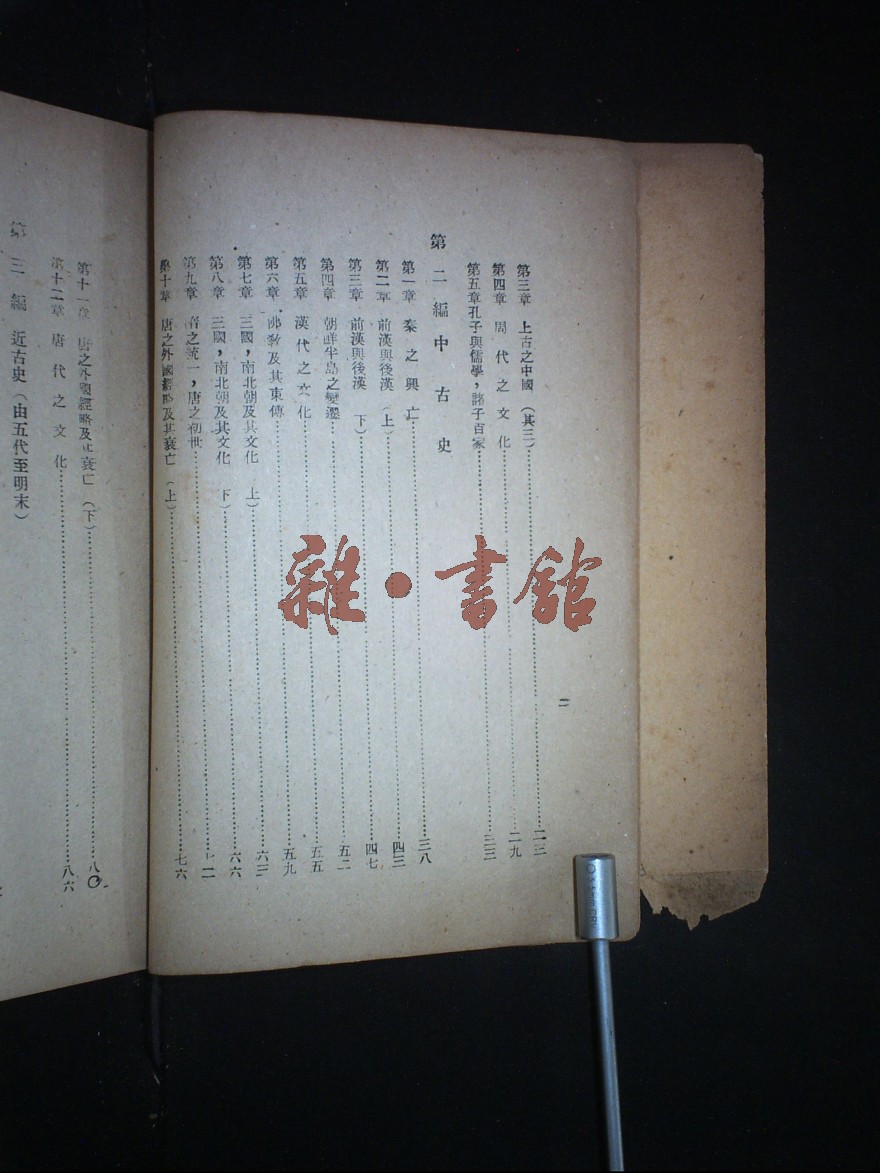 二
第三章 上古之中國（其三）……二三
第四章 周代之文化……二九
第五章 孔子與儒學，諸子百家……三三
第二編 中古史
第一章 秦之興亡……三八
第二章 前漢與後漢（上）……四三
第三章 前漢與後漢 下）……四七
第四章 朝鮮半島之變遷……五二
第五章 漢代之文化……五五
第六章 佛教及其東傳……五九
第七章 三國，南北朝及其文化 上）……六三
第八章 三國，南北朝及其文化 下）……六六
第九章 隋之統一，唐之初世……
第十章 唐之外國經略及其衰亡（上）……七六
第十一章 唐之外國經略及其衰亡（下）……八〇
第十二章 唐代之文化……八六
第三編 近古史（由五代至明末）
雜·書館